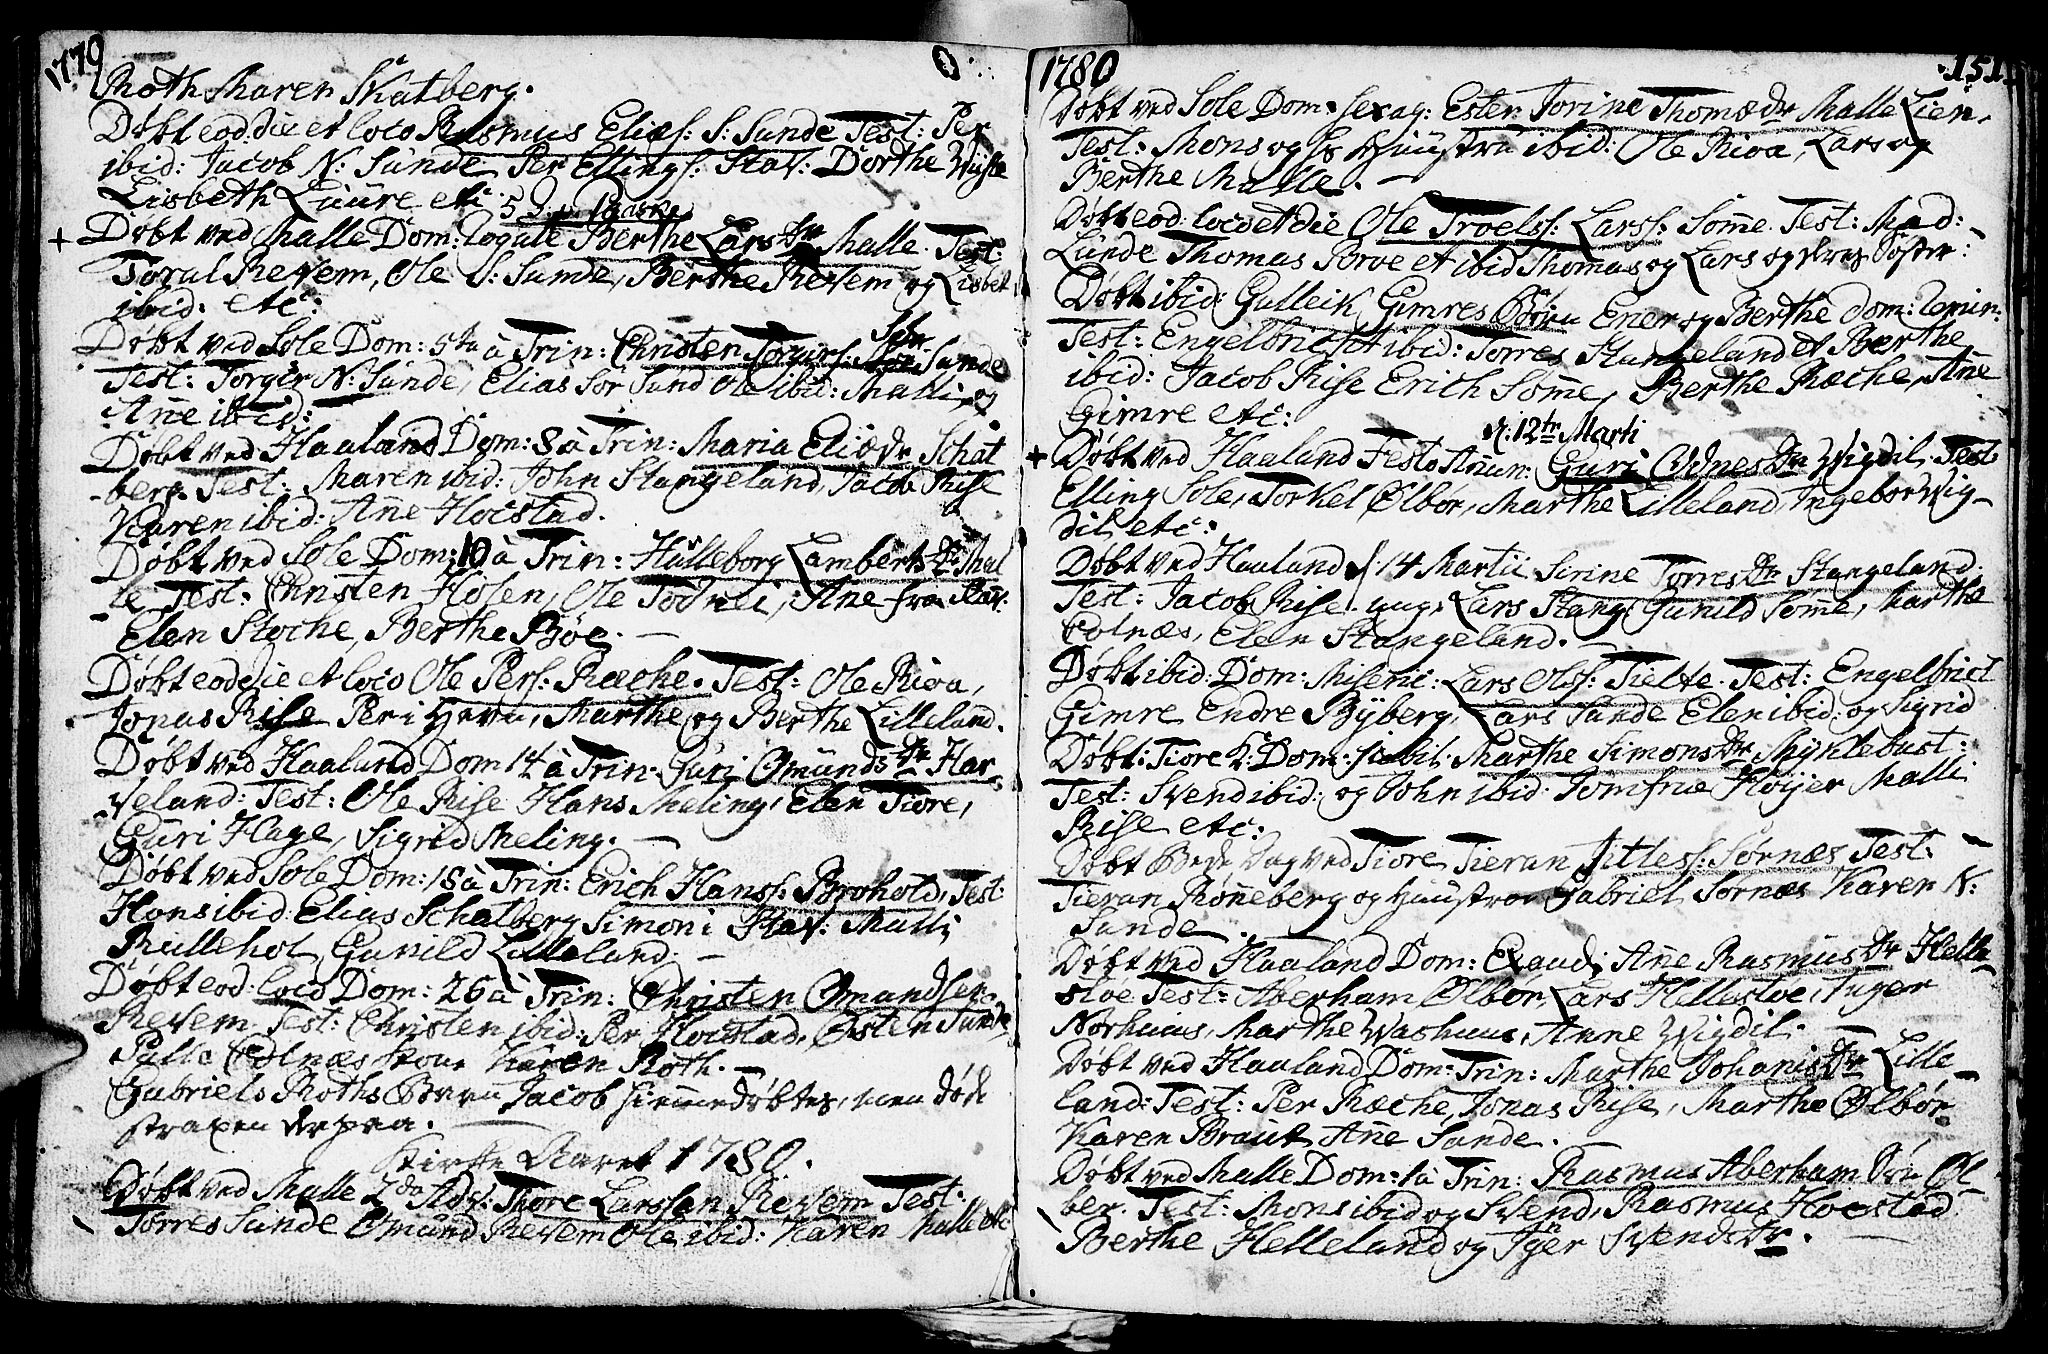 1779
Roth Maren Skatberg.
Døbt eod: die et loco Rasmus Elias: S: Sunde Test: Per
ibid: Jacob N: Sunde Per Ellings: Stav: Dorthe
Lisbeth Luure etc:
5 S: p: Paaske
+ Døbt ved Malle Dom: Rogate Berthe Lars Dr Malle. Test:
Toral Revem, Ole S: Sunde, Berthe Revem og Lisbet
ibid: etc:
Døbt ved Sole Dom: 5ta à Trin: Christen Torgirs: Sunde
Test: Torger N: Sunde, Elias Sør Sund Ole ibid: Malli og
Añe ibid:
Døbt ved Haaland Dom: 8 à Trin: Maria Eliæ Dr Schat
berg. Test: Maren ibid: John Stangeland, Jacob Rise
Karen ibid: Añe Hocstad.
Døbt ved Sole Dom: 10 à Trin: Hulleborg Lamberts Dr Mal
le Test: Christen Hosen, Ole Todnei, Añe fra Stav:
Elen Stoche, Berthe Bøe.
Døbt eod die et loco Ole Pers: Ræche. Test: Ole Risa,
Jonas Rise Per i Marthe og Berthe Lilleland.
Døbt ved Haaland Dom 14 à Trin: Guri Omunds Dr Har
veland: Test: Ole Rise Hans Meling, Elen Tiore,
Guri Hage, Sigrid Meling.
Døbt ved Sole Dom: 18 à Trin: Erich Hanss: Brohold, Test:
Hans ibid: Elias Schatberg Simon i Hav: Malli
Rullehol, Gunild Lilleland.
Døbt eod: loco Dom: 26 à Trin: Christen Omundsen
Revem Test: Christen ibid: Per Hocstad, Østen Sunde,
PalleØlnæs kone Karen Roth.
Gabriels Roths Barn Jacob hiemmedøbtes, men døde
strax en derpaa.
Kirke Aaret 1780.
Døbt ved Malle 2da Adv: Thore Larssen Revem Test:
Torres Sunde Omund Revem Ole ibid: Karen Malle etc
1780
151
Døbt ved Sole Dom: Sexag: Ester Jorine Thomæ Dr Malle Lien.
Test: Mons og Huustru ibid: Ole Risa, Lars og
Berthe Malle.
Døbt eod: loco et die Ole Troels: Larss: Some. Test: Mad:
Lunde Thomas Sorve et ibid Thomas og Lars og deres Søster:
Døbt ibid: Gulleik Gimres Børn Ener og Berthe Dom:
Test: Engelbricht ibid: Torres Stangeland et Berthe
ibid: Jacob Rise Erich Some, Berthe Ræche, Añe
Gimre etc:
d: 12te Marti
+ Døbt ved Haaland Festo Añun: Guri Odnes Dr Wigdil. Test:
Elling Sole, Torkel Ølbør, Marthe Lilleland, Ingebor Wig
dil etc:
Døbt ved Haaland d/14 Martii Sirine Torres Dr Stangeland.
Test: Jacob Rise. Lars Stang Gunild Some, Marthe
Elen Stangeland.
Døbt ibid: Dom: Miseric: Lars Ols: Tielte. Test: Engelbrict
Gimre Endre Byberg, Lars Sunde Elen ibid: og Sigrid
Døbt: Tiore K: Dom: Jubil: Marthe Simons Dr Myklebust:
Test: Svend ibid: og John ibid: Jomfrue Høyer Malli
Rise etc:
Døbt Bede Dag ved Tiore Tieran Jitless: Sørnæs Test:
Tieran Røneberg og Huustroe Gabriel Sørnæs Karen N:
Sunde.
Døbt ved Haaland Dom: Exaudi Añe Rasmus Dr Helle
stoe Test: Aberham Ølbør, Lars Hellestoe, Inger
Norhuus, Marthe Washuus, Anne Wigdil.
Døbt ved Haaland Dom: Trin: Marthe Johanis Dr Lille
land: Test: Per Ræche, Jonas Rise, Marthe Ølbør
Karen Braut Añe Sunde.
Døbt ved Malle Dom: 1 à Trin: Rasmus Aberham Søn Øl
ber. Test: Mons ibid og Svend, Rasmus Hocstad
Berthe Helleland og Svends Dr.